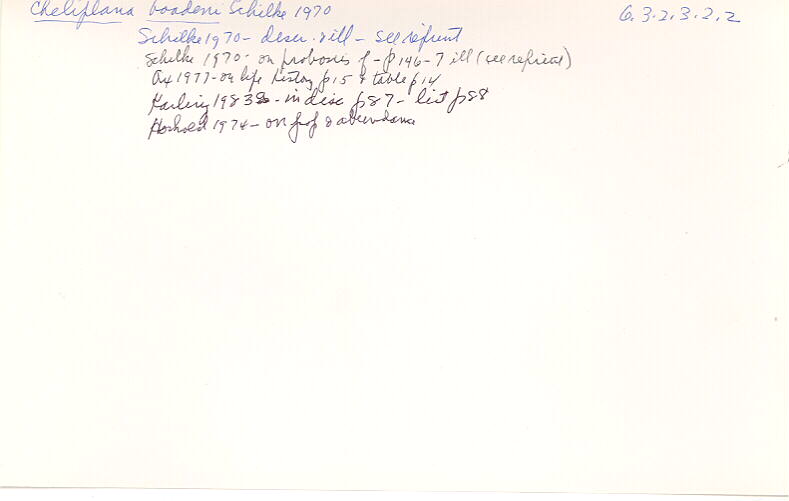 Cheliplana boadeni Schilke 1970 6.3.2.3.2.2
Schilke 1970 - descr. & ill - see reprint
Schilke 1970 - on proboscis of - p 146-7 ill (see reprint)
Ax 1977 - on life history p 15 & table p 14
Karling 1983 - in disc p 87 - list p 88
1974 - on & abundance